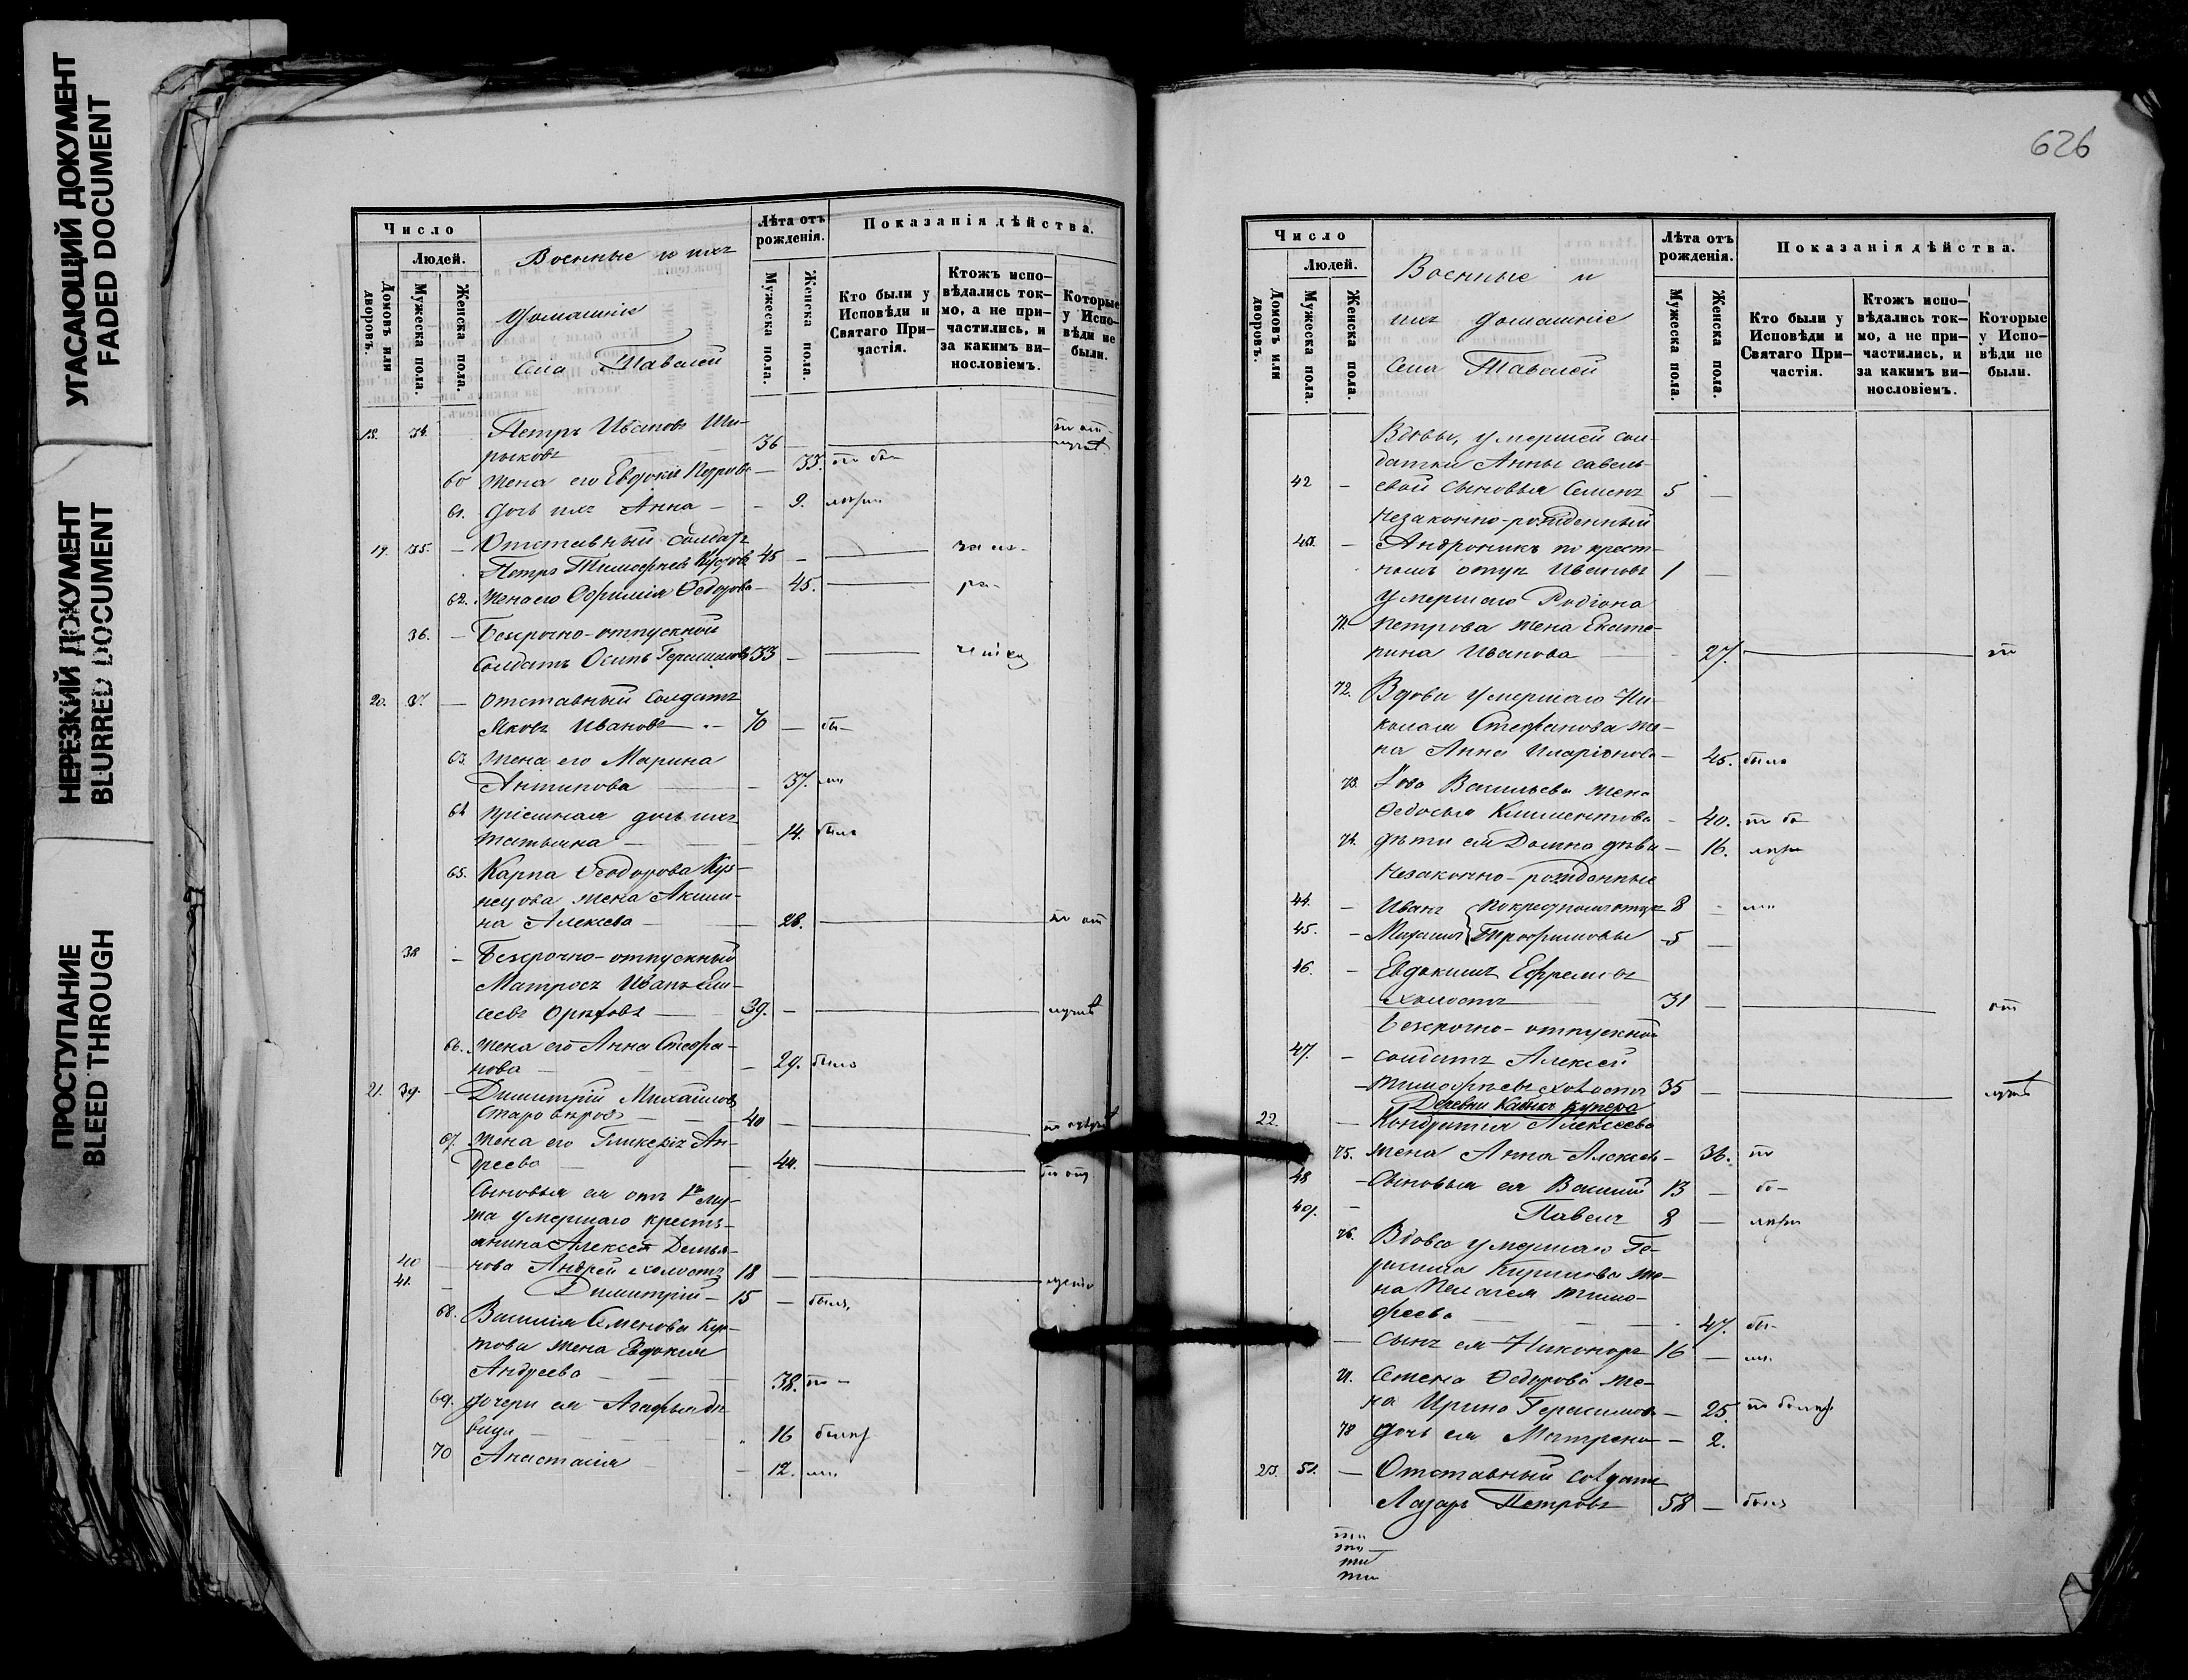 УГАСАЮЩИЙ ДОКУМЕНТ
FADED DOCUMENT
НЕРЕЗКИЙ ДОКУМЕНТ
BLURRED DOCUMENT
ПРОСТУПАНИЕ
BLEED THROUGH
Число
Людей.
Домовъ или дворовъ.
Мужеска пола.
Женска пола.
Военные и ихъ
домашніе
села Тавелей
Лѣта отъ рожденія.
Мужеска пола.
Женска пола.
Показанія дѣйства.
Кто были у Исповѣди и Святаго Причастія.
Ктожъ исповѣдались токмо, а не причастились, и за какимъ винословіемъ.
Которые у Исповѣди не были.
18. 34. Петръ Ивановъ Ши-
рыковъ 36
60 жена его Евдокія Петрова — 33.
61. дочь ихъ Анна — 9.
19. 35. — Отставный солдатъ
Петръ Тимофеевъ 45 —
62. Жена его Ефимія Ѳедорова — 45.
36. — Безсрочно-отпускной
Солдатъ Осипъ Герасимовъ 33 —
20. 37. — Отставный Солдатъ
Яковъ Ивановъ — 70 —
63. Жена его Марина
Антипова — 37.
64 пріемная дочь ихъ
Татьяна — 14. была
65. Карпа Ѳеодорова Куз-
нецова жена Акили-
на Алексева — 28.
38 — Безсрочно-отпускный
Матросъ Иванъ Ели-
сеевъ Орѣховъ — 39. —
66. Жена его Анна Стефа-
нова — 29. была
21. 39. — Димитрій Михайловъ
Старовѣровъ — 40 —
67. Жена его Гликерія Ан-
дреева — 44.
Сыновья ея отъ 1го му-
жа умершаго кресть-
янина Алексея Демья-
40 — нова Андрей холостъ 18 —
41. — Димитрій — 15 — былъ
68. Василія Семенова
жена Евдокія
Андреева — 38.
69. дочери ея Агафья дѣ-
вица — 16
70 Анастасія — 12.
626
Число
Людей.
Домовъ или дворовъ.
Мужеска пола.
Женска пола.
Военные и
ихъ домашніе
села Тавелей
Лѣта отъ рожденія.
Мужеска пола.
Женска пола.
Показанія дѣйства.
Кто были у Исповѣди и Святаго Причастія.
Ктожъ исповѣдались токмо, а не причастились, и за какимъ винословіемъ.
Которые у Исповѣди не были.
Вдовы, умершей сол-
датки Анны Савель-
42 — евой сыновья Семенъ 5 —
Незаконно-рожденный
43. — Андроникъ по крест-
номъ отцѣ Ивановъ 1 —
Умершаго Родіона
71. Петрова жена Екате-
рина Иванова — 27.
72. Вдова умершаго Ни-
колая Стефанова же-
на Анна Иларіонова — 45. была
73. Васильева жена
Ѳедосья Климентова — 40.
74. дѣти ея Домна дѣви — 16.
Незаконно-рожденные
44. — Иванъ по крестномъ отцѣ 8
45. — Михаилъ Трофимовы 5 —
46. — Евдокимъ Ефремовъ
холостъ 31 —
Безсрочно-отпускной
47. — Солдатъ Алексей
Тимофеевъ холостъ 35 —
Деревни
22. — Кондратія Алексеева
75. жена Анна Алексеев — 36.
48 — Сыновья ея Василій 13 —
49. — Павелъ 8 —
76. Вдова умершаго Ге-
расима Кирилова же-
на Пелагея Тимо-
феева — 47.
— сынъ ея Никаноръ 16 —
77. Семена Ѳедорова же-
на Ирина Герасимова — 25.
78 дочь ея Матрена — 2.
23. 51. — Отставный солдатъ
Лазарь Петровъ 58 — былъ